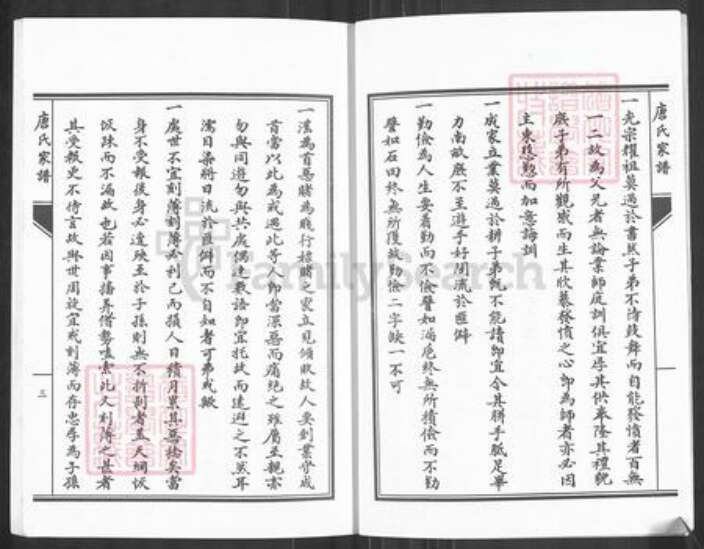 唐氏家譜
一光宗耀祖莫過於書然子弟不待鼓舞而自能發憤者百無
一二故為父兄者無論業師庭訓俱宜厚其供奉隆其禮貌
庶子弟有所觀感而生其欣慕發憤之心即為師者亦必因
主東慇懃而加意誨訓
一成家立業莫過於耕子弟既不能讀即宜令其胼手胝足畢
力南畝庶不至遊手好閒流於匪僻
一勤儉為人生要着勤而不儉譬如漏卮終無所積儉而不勤
譬如石田終無所獲故勤儉二字缺一不可
一淫為首惡賭為賤行嫖賭之家立見傾敗故人要創業守成
首當以此為戒遇此等人即當深惡而痛絕之雖屬至親亦
勿與同遊勿與共處偶交數語即宜托故而遠避之不然耳
濡目染將日流於匪僻而不自知者可弗戒歟
一處世不宜刻薄刻薄必利己而損人日積月累其惡稔矣當
身不受報後身必遺殃至於子孫則無不折剉者蓋天網恢
恢疎而不漏故也若因事播弄借勢嚇索此又刻薄之甚者
其受報更不待言故與世周旋宜戒刻薄而存忠厚為子孫
唐氏家譜
三
FamilySearch